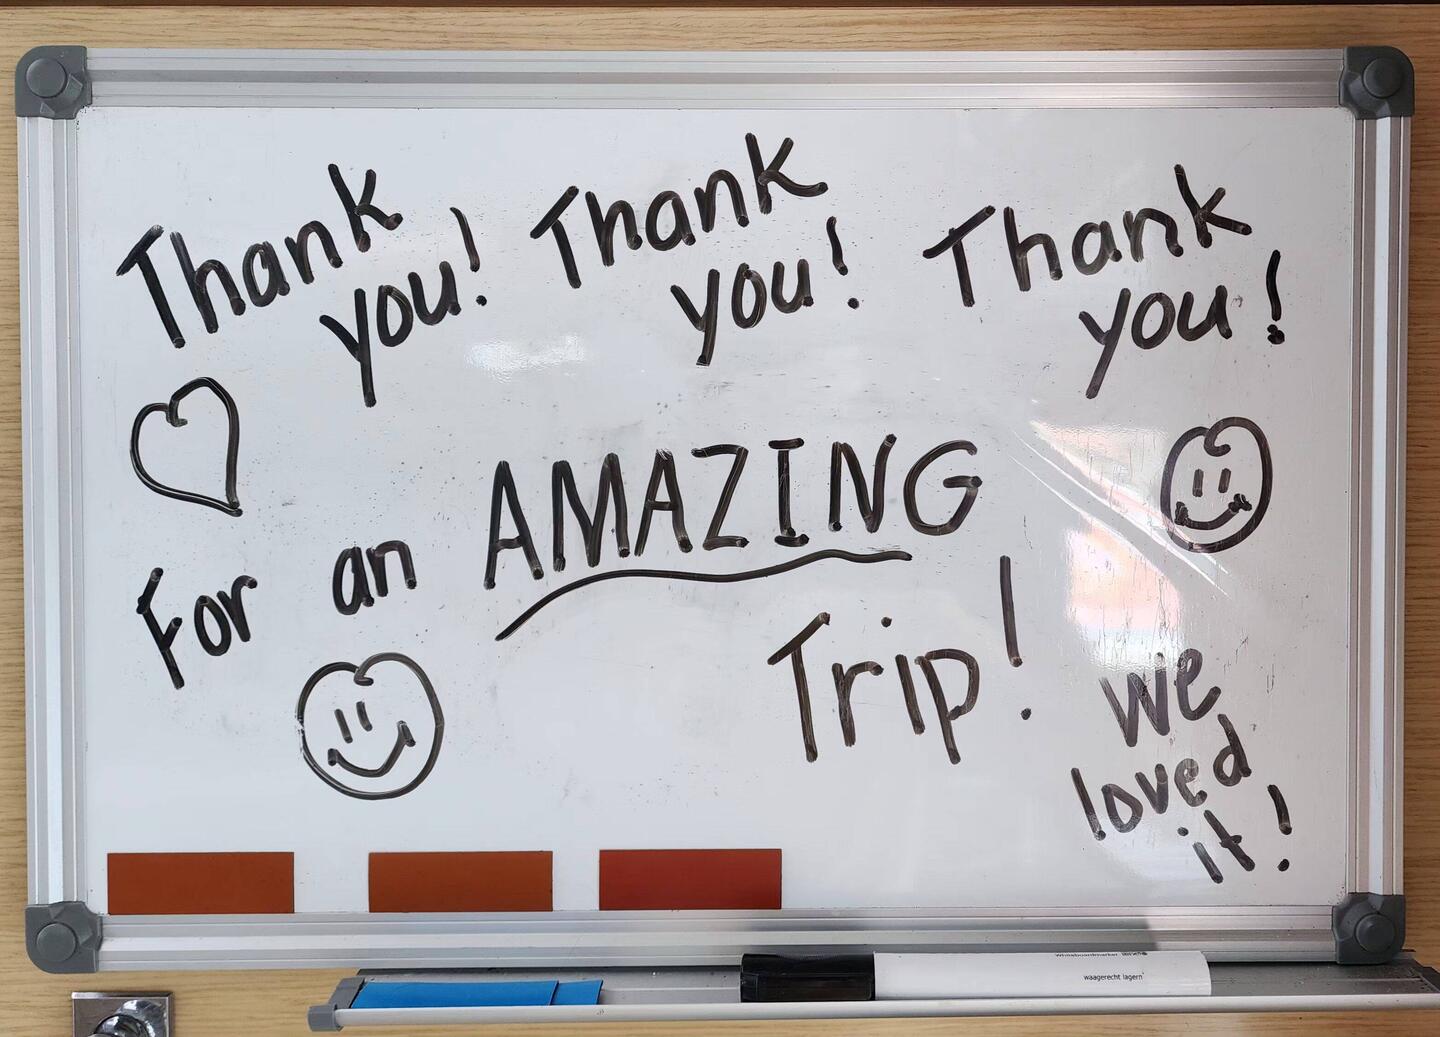 Thank you! Thank you! Thank you!
For an AMAZING
Trip!
We
loved
it!
Whiteboardmarker
waagerecht lagern